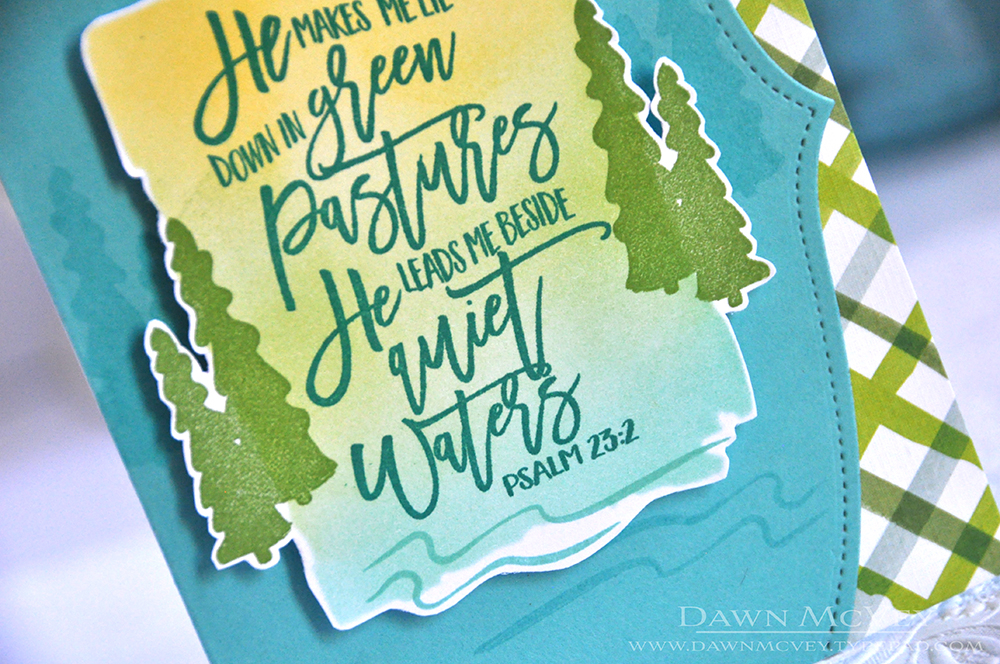 He MAKES ME LIE
DOWN IN green
pastures
He LEADS ME BESIDE
quiet
waters
PSALM 23:2
DAWN MCVEY
WWW.DAWNMCVEY.TYPEPAD.COM